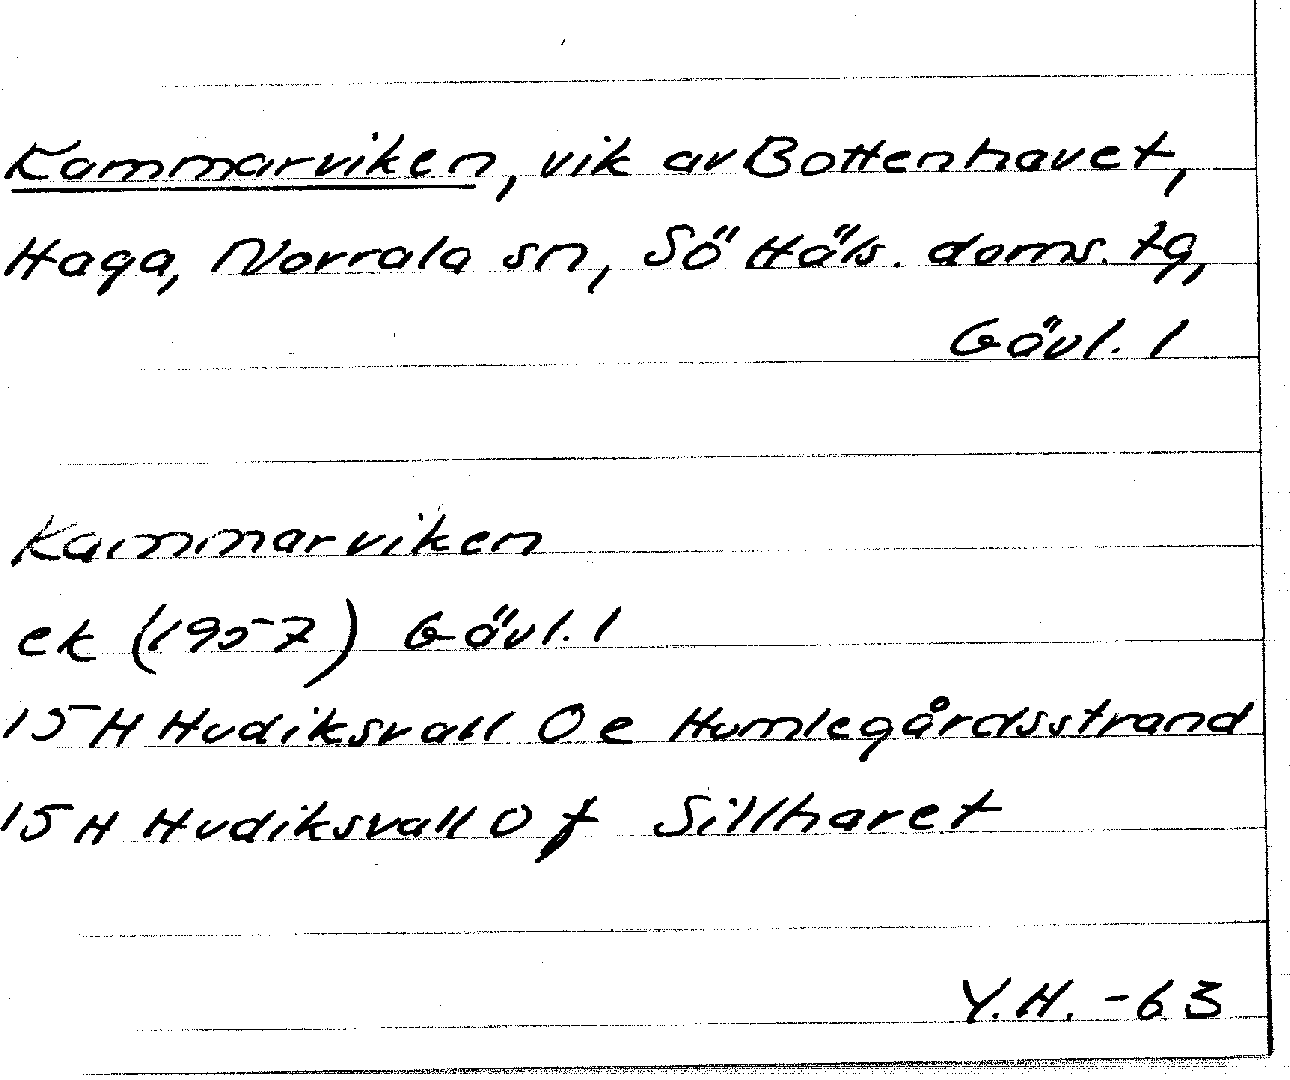 Kammarviken, vik av Bottenhavet,
Haga, Norrala sn, Sö Häls. doms. tg,
Gävl. l
Kammarviken
ek (1957) Gävl. l
15 H Hudiksvall 0 e Humlegårdsstrand
15 H Hudiksvall 0 f Sillharet
Y.H. -63